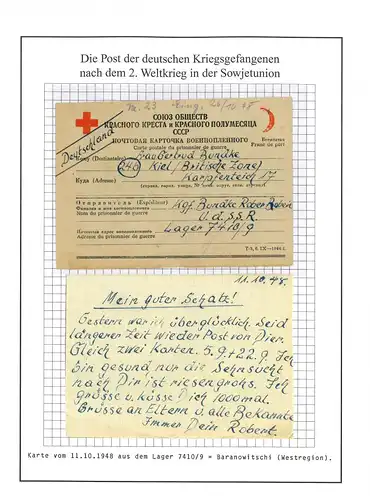 Die Post der deutschen Kriegsgefangenen
nach dem 2. Weltkrieg in der Sowjetunion
СОЮЗ ОБЩЕСТВ
КРАСНОГО КРЕСТА и КРАСНОГО ПОЛУМЕСЯЦА
СССР
Deutschland
ПОЧТОВАЯ КАРТОЧКА ВОЕННОПЛЕННОГО
Carte postale du prisonnier de guerre
Бесплатно
Franc de port
Кому (Destinataire) Frau Gertrud Bundke
24b Kiel / Britische Zone)
Куда (Adresse) Karpfenteich 17
Отправитель (Expéditeur) Kgf. Bundke Robert
Фамилия и имя военнопленного
Nom du prisonnier de guerre U.d.S.S.R.
Почтовый адрес военнопленного Lager 7410/9
Adresse du prisonnier de guerre
11.10.48.
Mein guter Schatz!
Gestern war ich überglücklich. Seid
längerer Zeit wieder Post von Dier.
Gleich zwei Karten. 5.9. + 22.9. Ich
bin gesund nur die Sehnsucht
nach Dir ist riesengrohs. Ich
grüsse u. küsse Dich 1000mal.
Grüsse an Eltern u. alle Bekannte
Immer Dein Robert.
Karte vom 11.10.1948 aus dem Lager 7410/9 = Baranowitschi (Westregion).